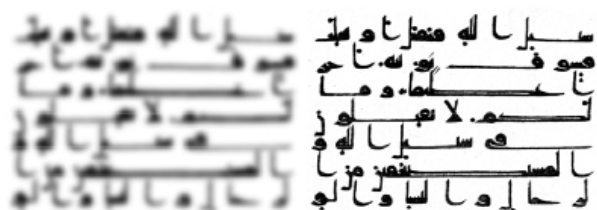 سبيل ا لله فيقتل ا و يغلب
فسو ف نو تيه ا جر
ا عظيما و ما
لكم لا تقتلو ن
في سبيل ا لله و
ا لمستضعفين من ا
لر جا ل و ا لنسا و ا لو